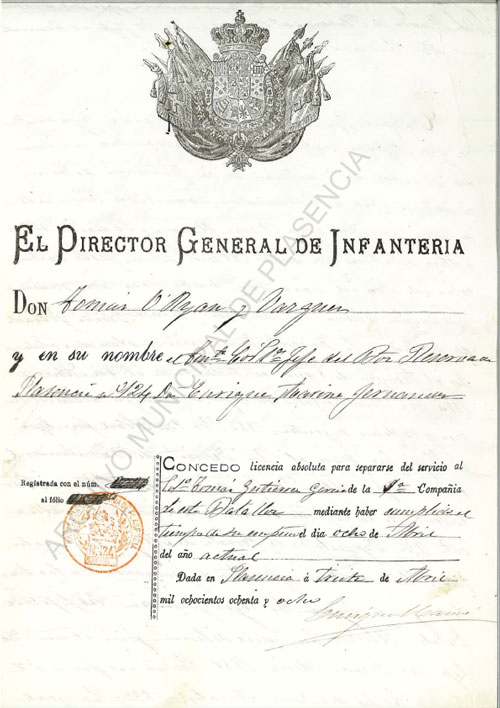 EL DIRECTOR GENERAL DE INFANTERIA
DON Tomas O'Ryan y Vazquez
y en su nombre el Jefe del Bon Reserva de
Plasencia nº 124 Dn Enrique Marine Fernandez
CONCEDO licencia absoluta para separarse del servicio al
Sdo Tomás Gutierrez Garcia de la 1a Compañia
de este Batallon mediante haber cumplido el
tiempo de su empeño el dia ocho de Abril
del año actual
Dada en Plasencia á Treinta de Abril
mil ochocientos ochenta y ocho
Registrada con el núm.
al fólio
ARCHIVO MUNICIPAL DE PLASENCIA